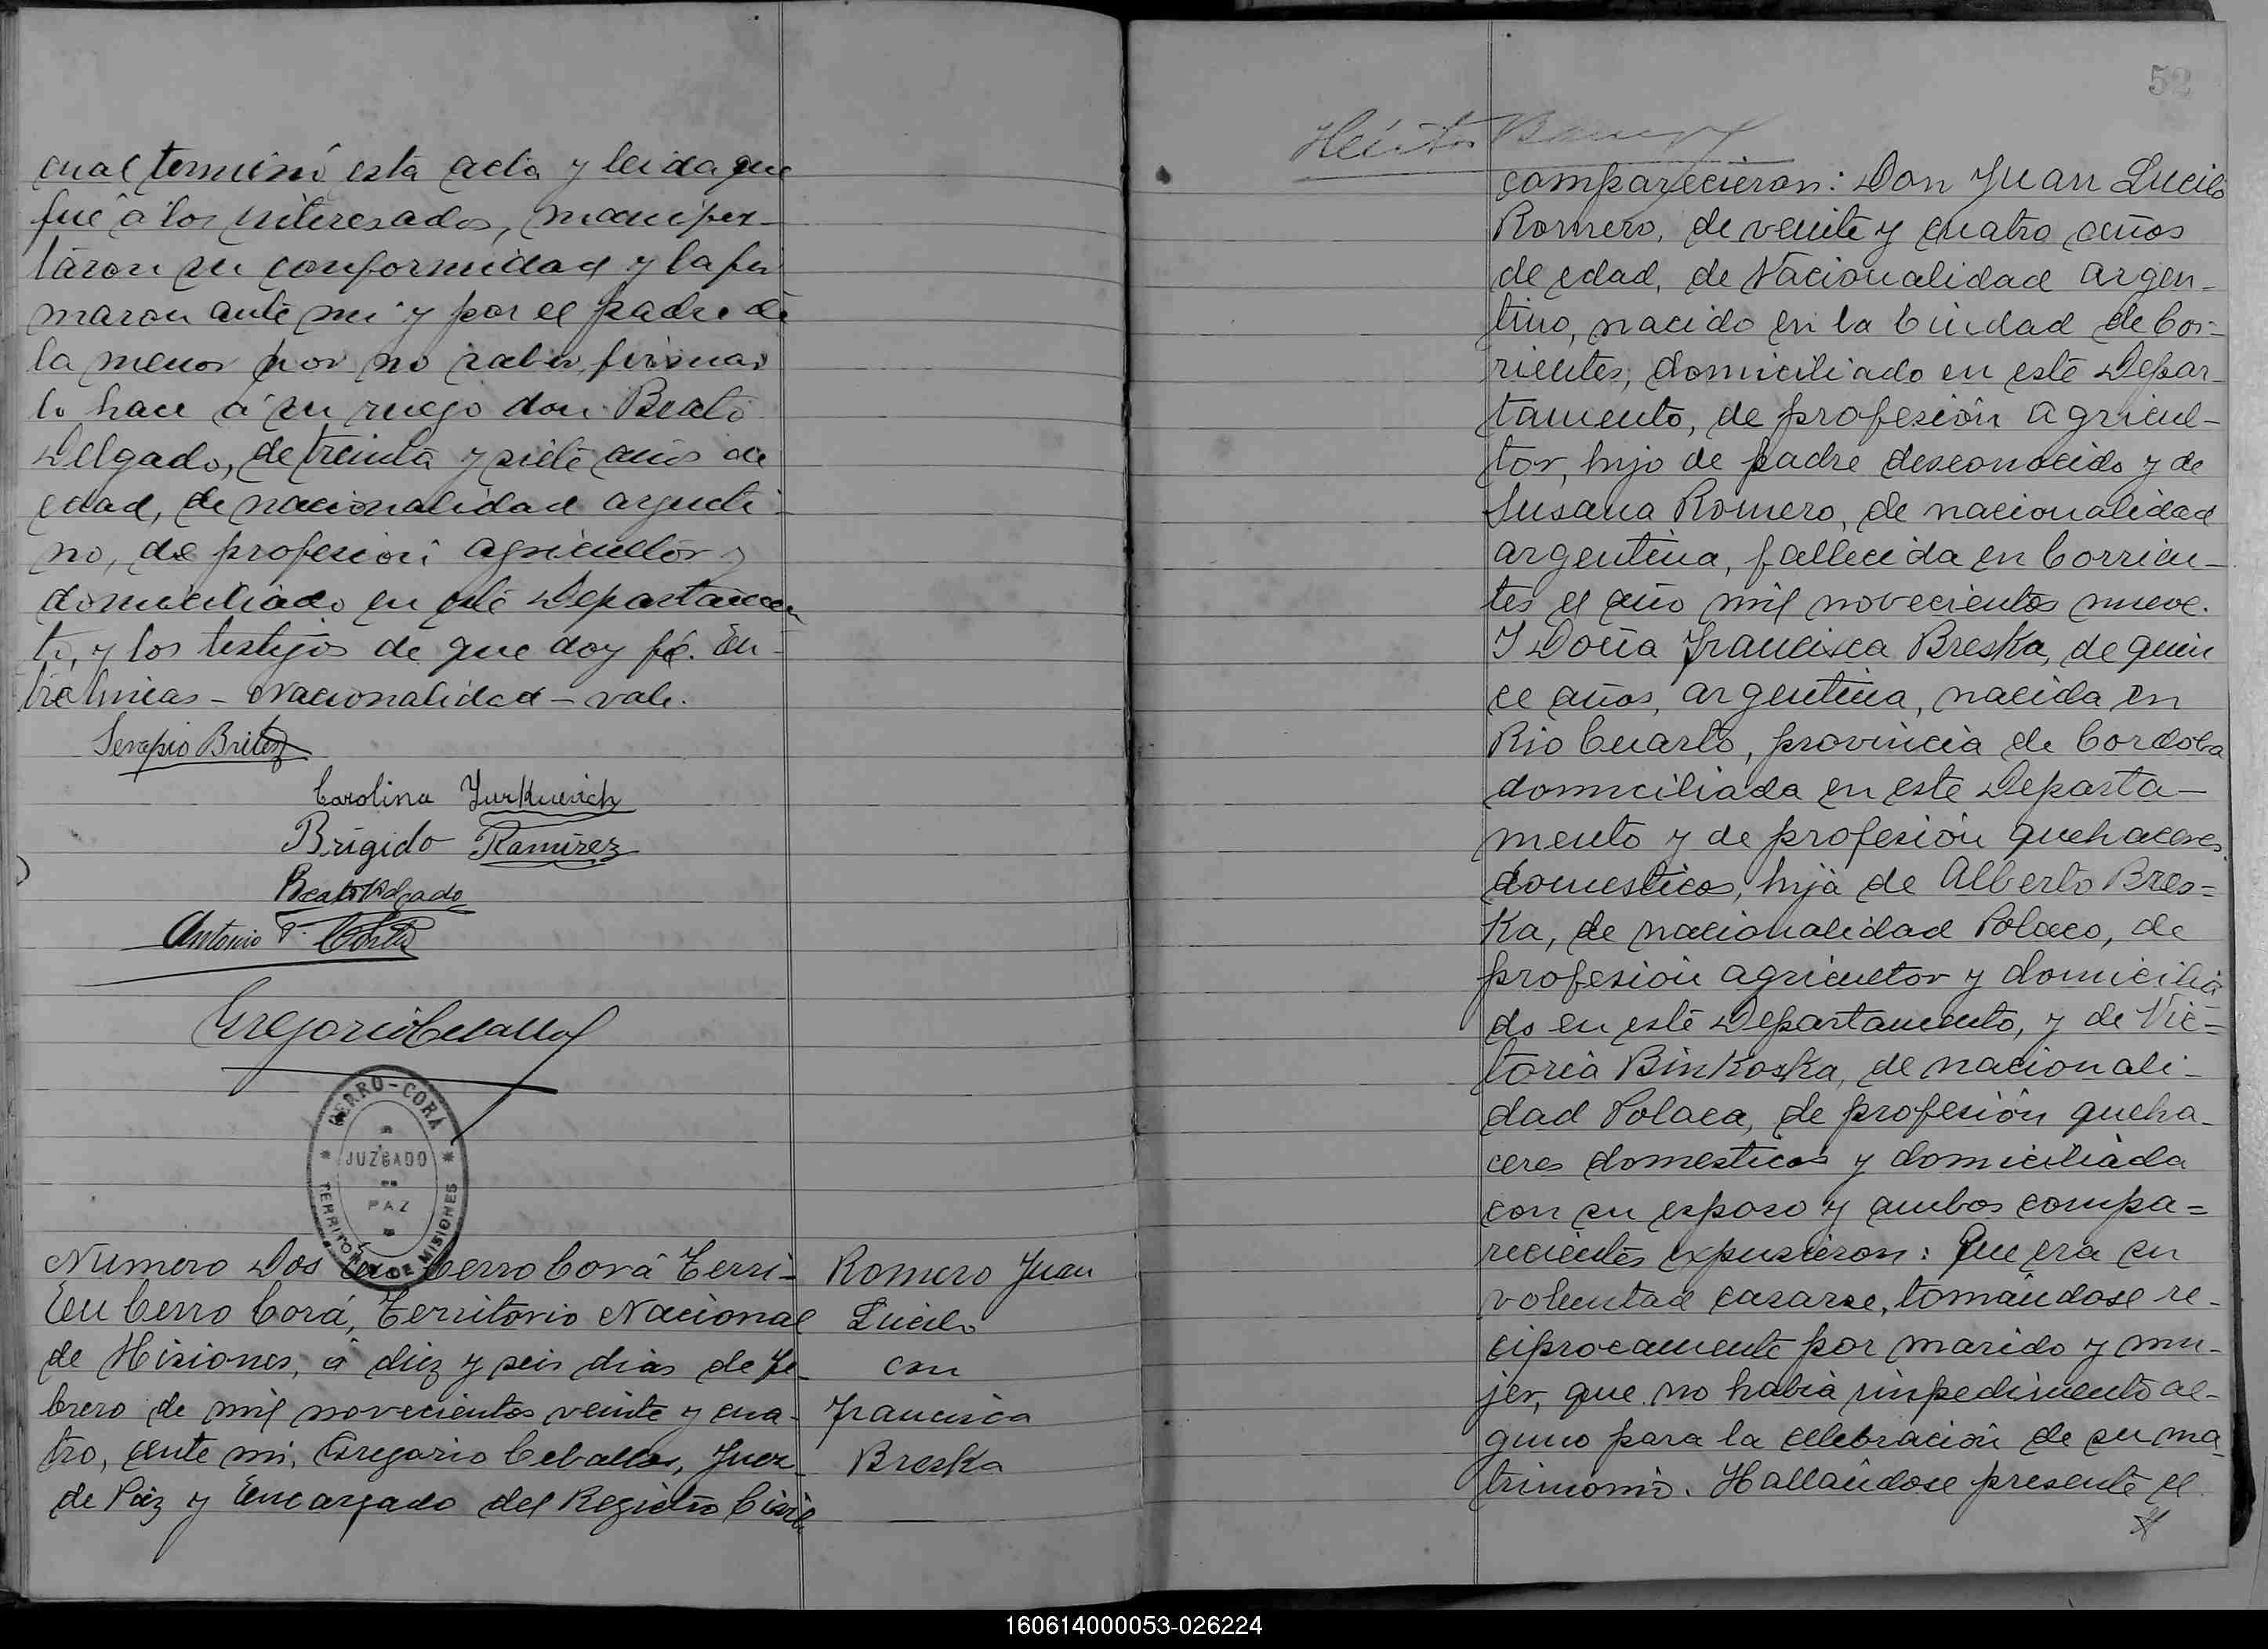 cual terminó esta acta y leida que
fué á los interesados, manifes-
taron su conformidad y la fir
maron ante mi y por el padre de
la menor por no saber firmar
lo hace á su ruego don Beato
Delgado, de treinta y siete años de
edad, de nacionalidad argenti-
no, de profesión agricultor y
domiciliado en este Departamen
to, y los testigos de que doy fé. En-
tre lineas - Nacionalidad - vale.
Serapio Britez
Carolina Yurkievich
Brígido Ramírez
Beato Delgado
Antonio F.
Gregorio Ceballos
CERRO-CORÁ
JUZGADO
DE
PAZ
TERRITORIO DE MISIONES
Número Dos En Cerro Corá Terri-
En Cerro Corá, Territorio Nacional
de Misiones, á diez y seis dias de Fe-
brero de mil novecientos veinte y cua-
tro, ante mi, Gregorio Ceballos, Juez
de Paz y Encargado del Registro Civil
Romero Juan
Lucilo
con
Francisca
Breska
52
Héctor
comparecieron: Don Juan Lucilo
Romero, de veinte y cuatro años
de edad, de Nacionalidad argen-
tino, nacido en la Ciudad de Cor-
rientes, domiciliado en este Depar-
tamento, de profesión agricul-
tor, hijo de padre desconocido y de
Susana Romero, de nacionalidad
argentina, fallecida en Corrien-
tes el año mil novecientos nueve.
Y Doña Francisca Breska, de quin
ce años, argentina, nacida en
Rio Cuarto, provincia de Cordoba
domiciliada en este Departa-
mento y de profesión quehaceres
domesticos, hija de Alberto Bres=
ka, de nacionalidad Polaco, de
profesión agricultor y domicilia
do en este Departamento, y de Vic=
toria Binkoska, de nacionali-
dad Polaca, de profesión queha-
ceres domesticos y domiciliada
con su esposo y ambos compa=
recientes expusieron: Que era su
voluntad casarse, tomándose re-
ciprocamente por marido y mu-
jer, que no habia impedimento al-
guno para la celebración de su ma
trimonio. Hallándose presente el
160614000053-026224